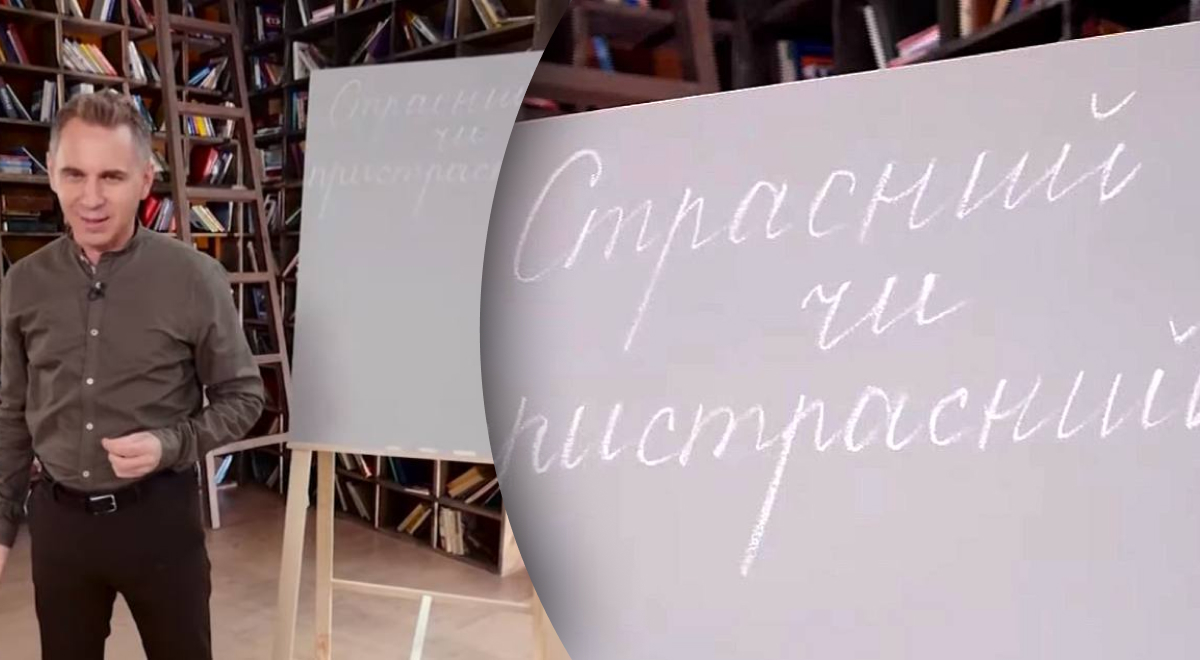 Страсни
чи
пристрас
Страсний
чи
ристрасний